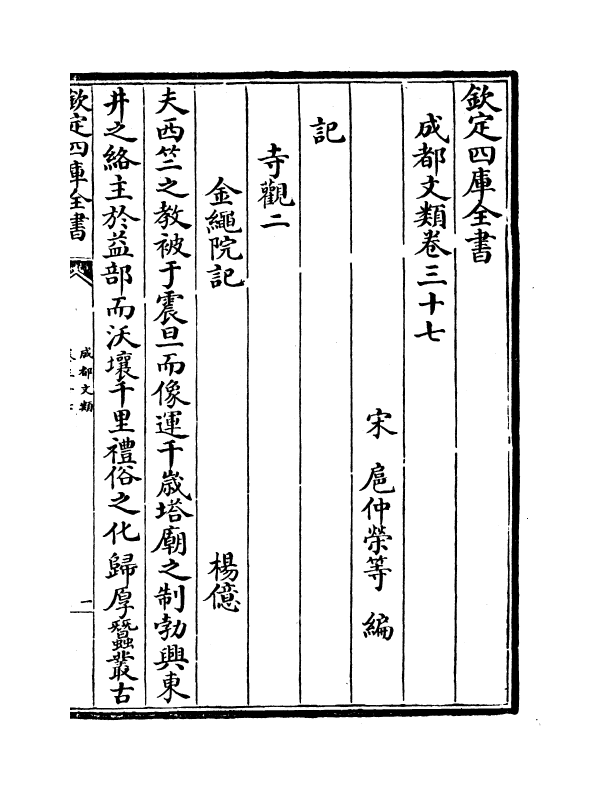 欽定四庫全書
成都文類卷三十七
宋　扈仲榮等　編
記
寺觀二
金繩院記　楊億
夫西竺之教被于震旦而像運千歲塔廟之制勃興東
井之絡主於益部而沃壤千里禮俗之化歸厚蠶叢古
欽定四庫全書
成都文類
一